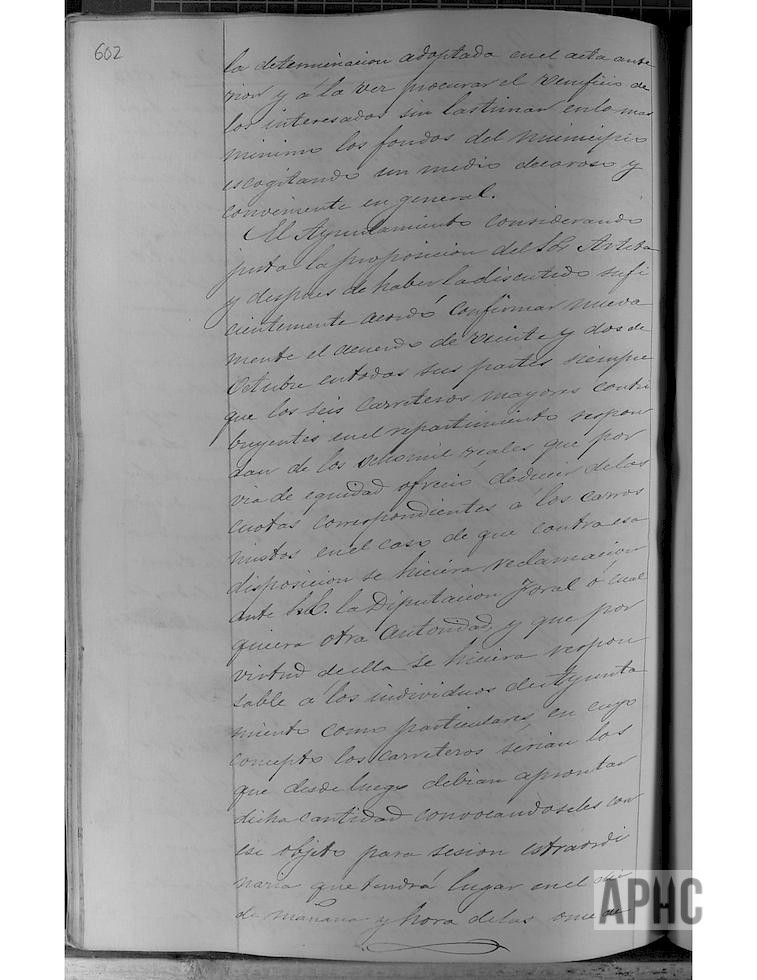 602
la determinacion adoptada en el acta ante
rior y a la vez procurar el veneficio de
los interesados sin lastimar en lo mas
minimo los fondos del municipio
escogitando un medio decoroso y
conveniente en general.
El Ayuntamiento considerando
justa la proposicion del Sor Arteta
y despues de haberla discutido sufi
cientemente acordó confirmar nueva
mente el acuerdo de veinte y dos de
Octubre en todas sus partes siempre
que los seis carreteros mayores contri
buyentes en el repartimiento respon
dan de los ocho mil reales que por
via de equidad ofreció deducir de las
cuotas correspondientes a los carros
mistos en el caso de que contra esa
disposicion se hiciera reclamacion
ante S.E. la Diputacion Foral ó cual
quiera otra autoridad, y que por
virtud de ella se hiciera respon
sable a los individuos del Ayunta
miento como particulares, en cuyo
concepto los carreteros serian los
que desde luego debian aprontar
dicha cantidad convocandoseles con
ese objeto para sesion estraordi
naria que tendrá lugar en el dia
de mañana y hora de las once de
APHC